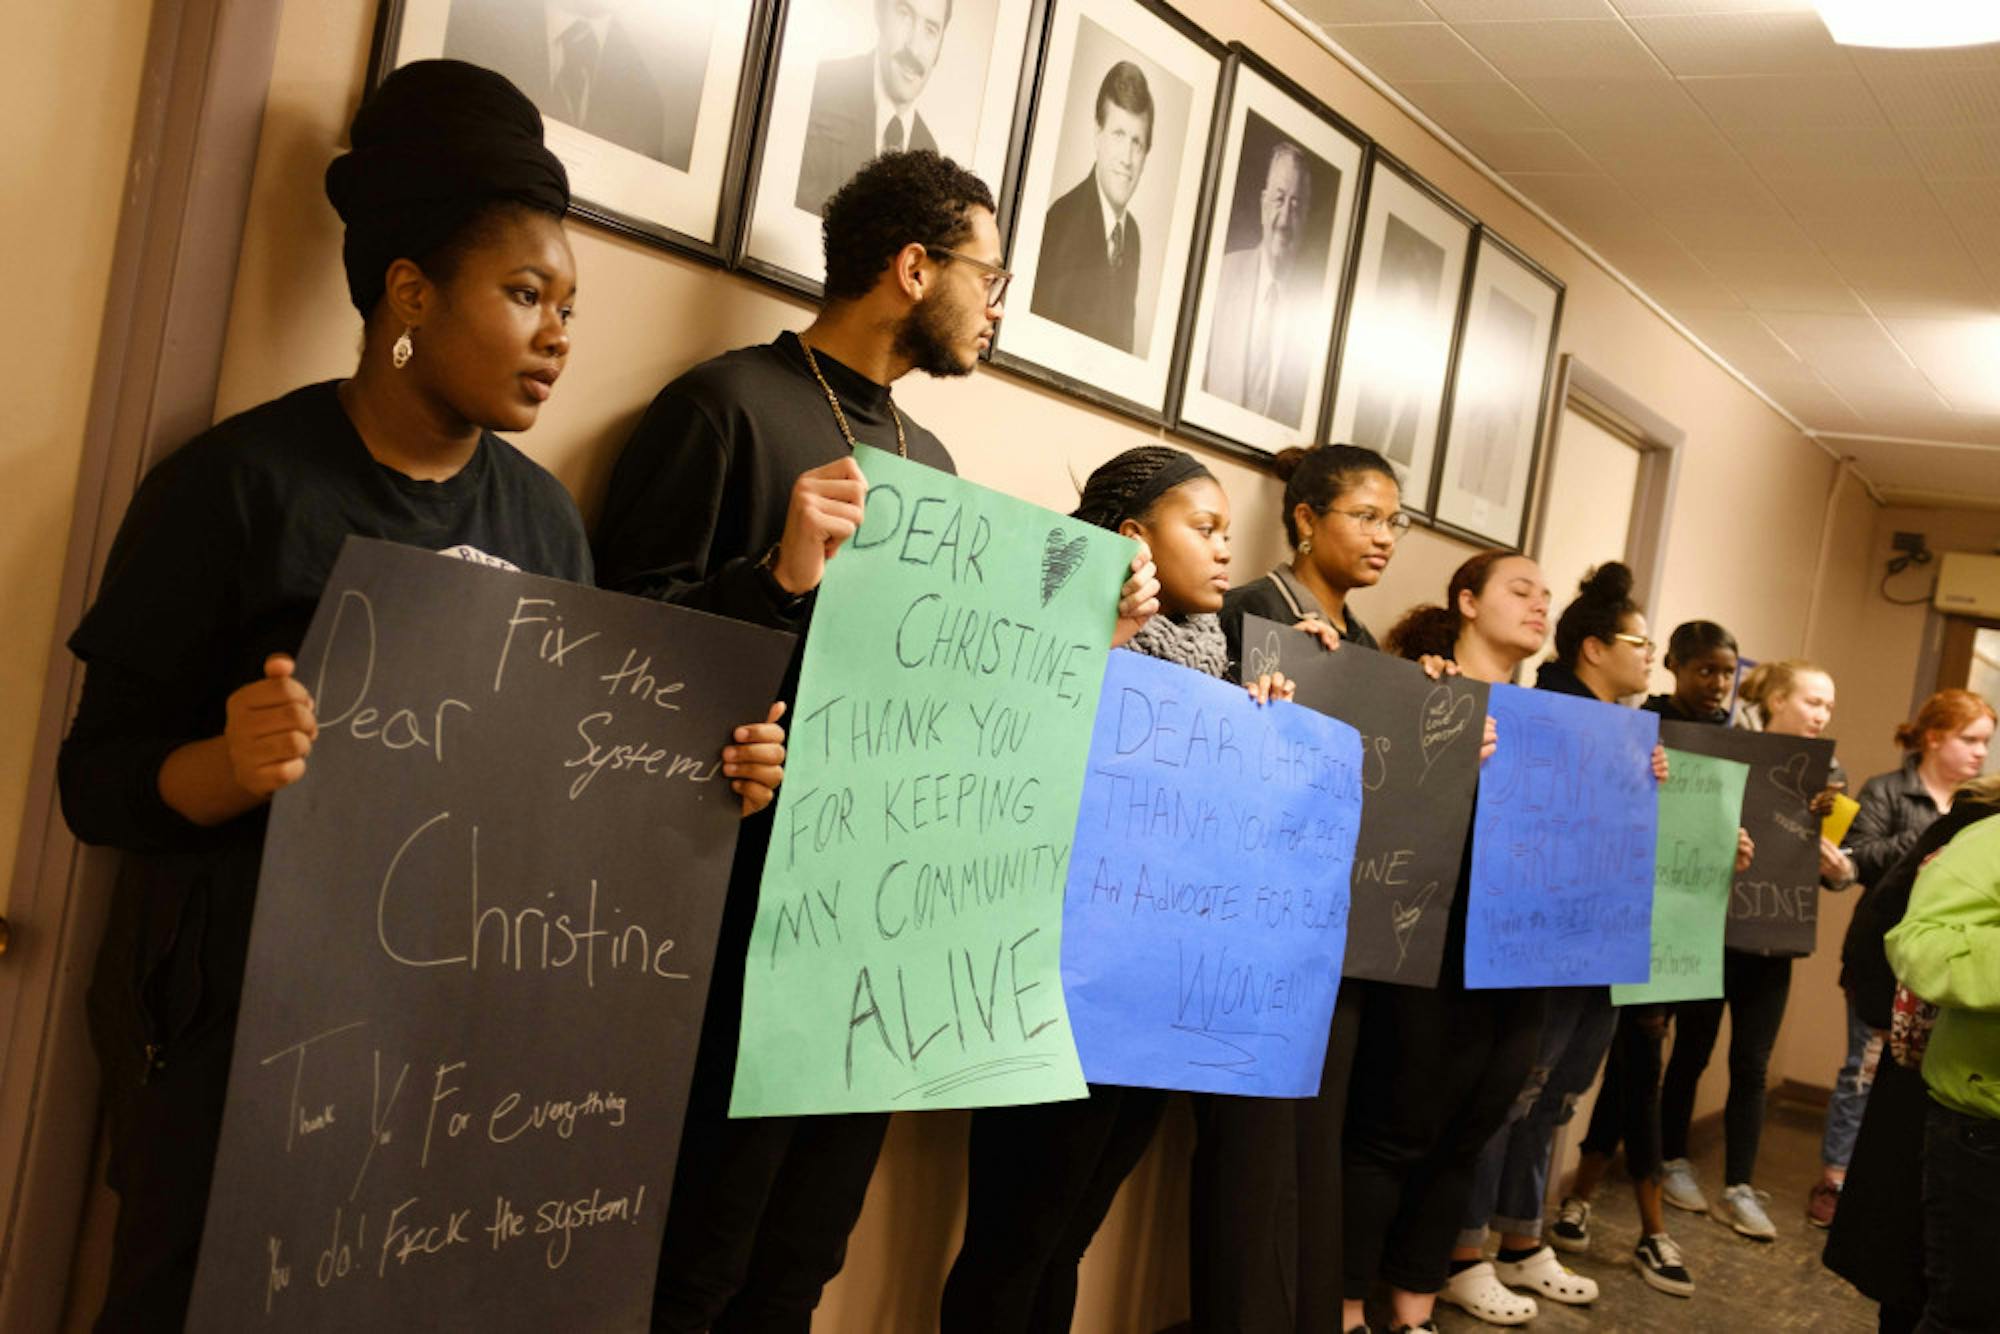 Dear
Fix the
System!
Christine
Thank You For everything
You do! F*ck the system!
DEAR
CHRISTINE,
THANK YOU
FOR KEEPING
MY COMMUNITY
ALIVE
DEAR CHRISTINE
THANK YOU FOR
AN ADVOCATE FOR BLACK
WOMEN
WE
LOVE
CHRISTINE
INE
DEAR
CHRISTINE
You're the BEST
THANK
YOU
For Christine
STINE